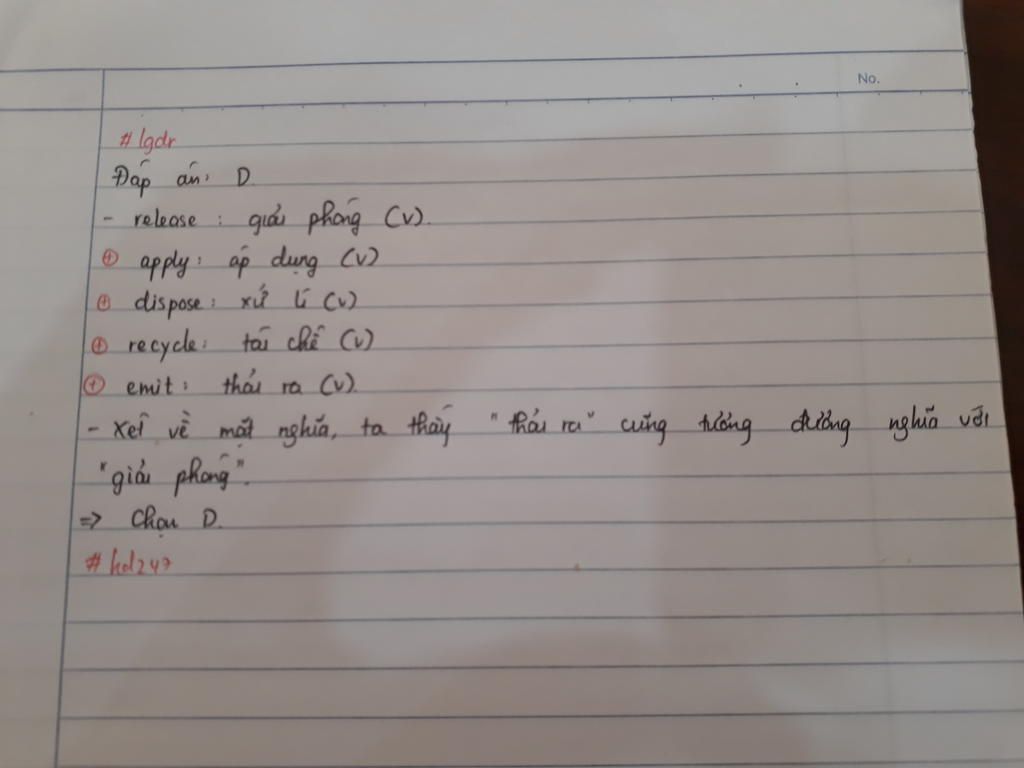 No.
#lgdr
Đáp án: D.
- release : giải phóng (v).
+ apply: áp dụng (v)
+ dispose: xử lí (v)
+ recycle: tái chế (v)
+ emit: thải ra (v).
- Xét về mặt nghĩa, ta thấy "thải ra" cũng tương đương nghĩa với
"giải phóng".
=> Chọn D.
#hd247